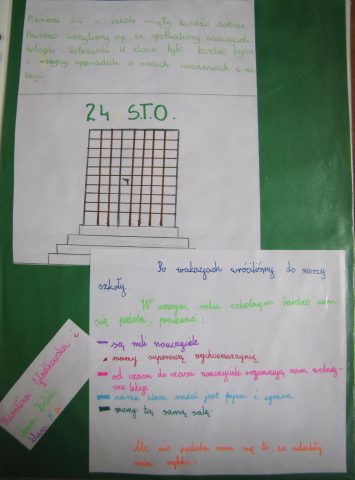 Pierwsze dni w szkole minęły bardzo dobrze.
Bardzo ucieszyłyśmy się, że spotkaliśmy nauczycieli,
kolegów i koleżanki. W klasie było bardzo fajnie
i wszyscy opowiadali o swoich wrażeniach z wa-
kacji.
24 S.T.O.
Po wakacjach wróciliśmy do naszej
szkoły.
W nowym roku szkolnym bardzo nam
się podoba, ponieważ:
są mili nauczyciele
mamy superową wychowawczynię
od czasu do czasu nauczyciele organizują nam wolniej-
sze lekcje
nasza klasa nadal jest fajna i zgrana
mamy tą samą salę.
Ale nie podoba nam się to, że zdechły
nam rybki.
Karolina i
Ania
klasa